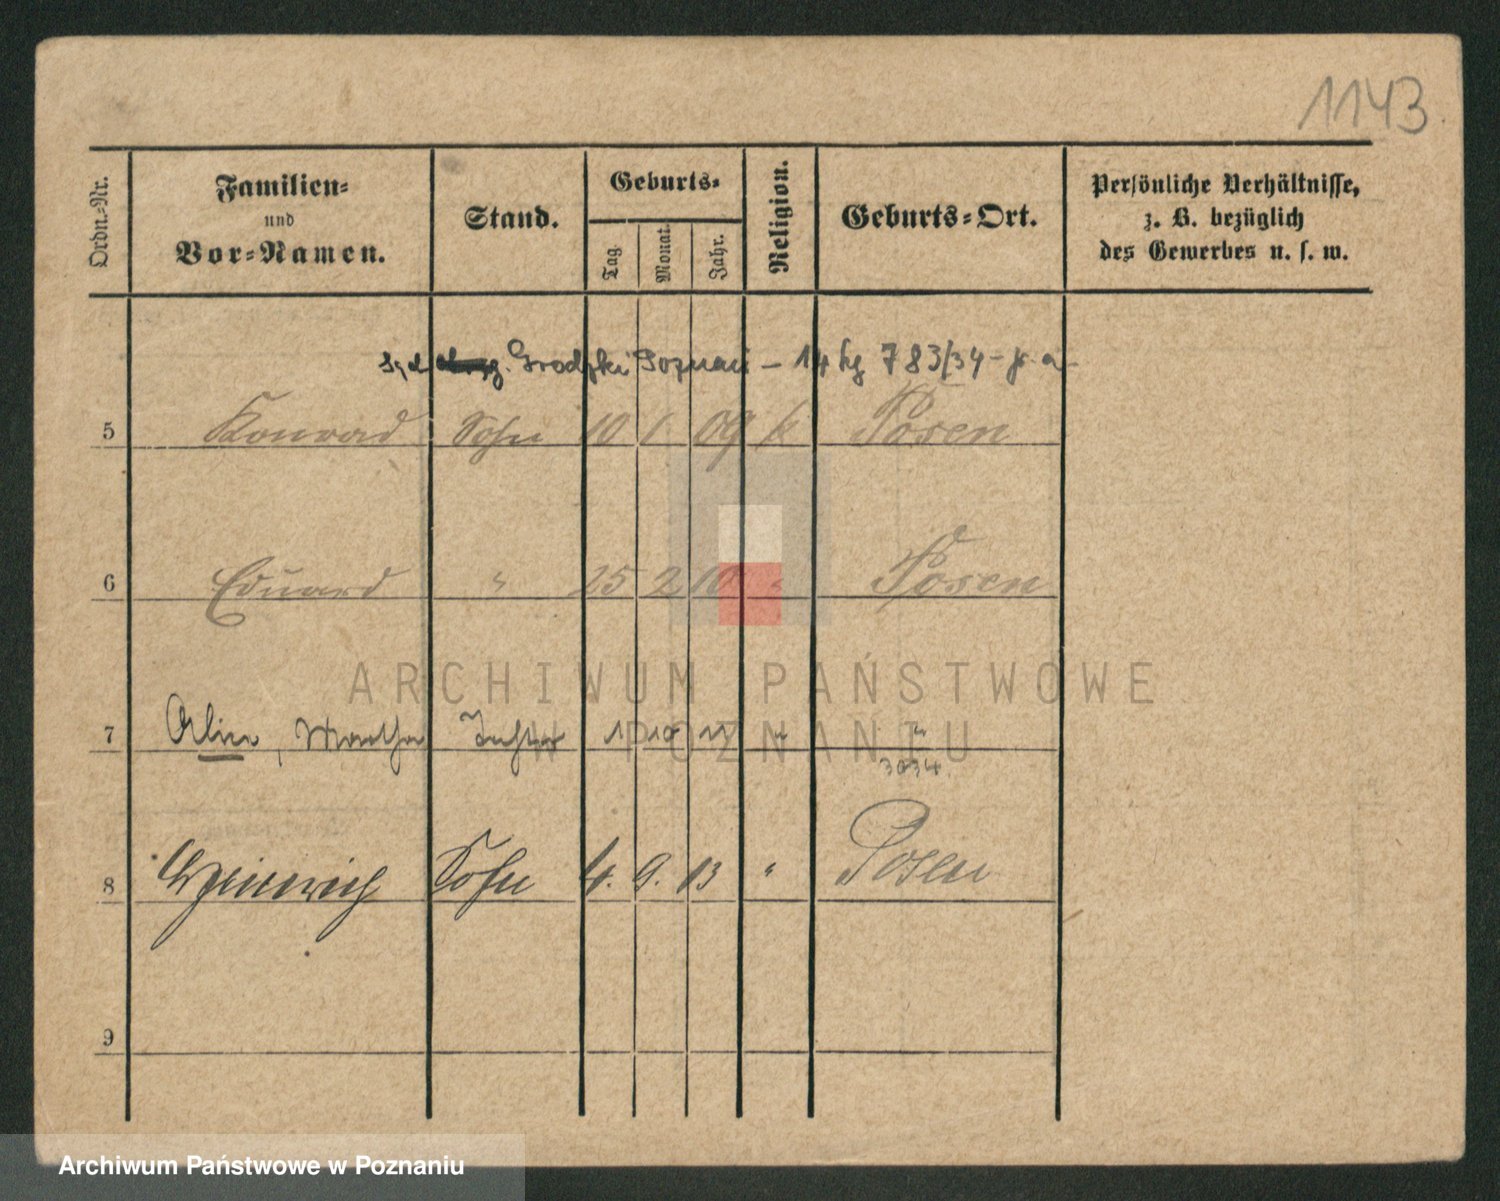 1143
Ordn.-Nr.
Familien-
und
Vor-Namen.
Stand.
Geburts-
Tag.
Monat.
Jahr.
Religion.
Geburts-Ort.
Persönliche Verhältnisse,
z. B. bezüglich
des Gewerbes u. s. w.
Sąd Grodzki Poznań – 14 kg 783/34 –
5 Konrad Sohn 10 1 09 k Posen
6 Eduard " 25 2 10 " Posen
7 Martha Tochter 1 10 11 " "
3034.
8 Heinrich Sohn 4. 9. 13 " Posen
9
ARCHIWUM PAŃSTWOWE
W POZNANIU
Archiwum Państwowe w Poznaniu